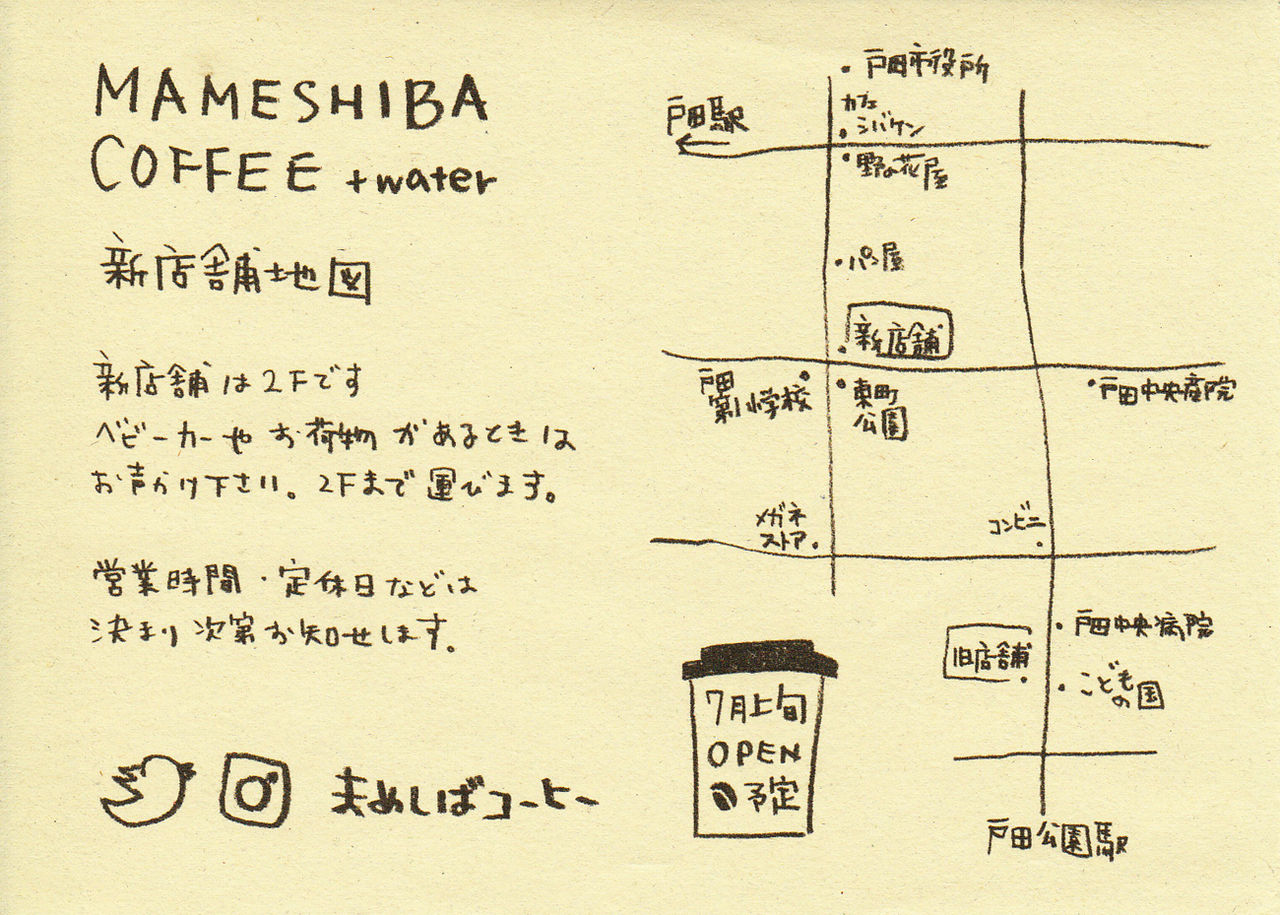 MAMESHIBA
COFFEE +water
新店舗地図
新店舗は2Fです
ベビーカーや お荷物 があるときは
お声かけ下さい。2Fまで運びます。
営業時間・定休日などは
決まり次第お知らせします。
まめしばコーヒー
戸田市役所
カフェ
シバケン
戸田駅
野の花屋
パン屋
新店舗
戸田
第一小学校
東町
公園
戸田中央産院
メガネ
ストア
コンビニ
戸田中央病院
旧店舗
こども
の国
戸田公園駅
7月上旬
OPEN
予定